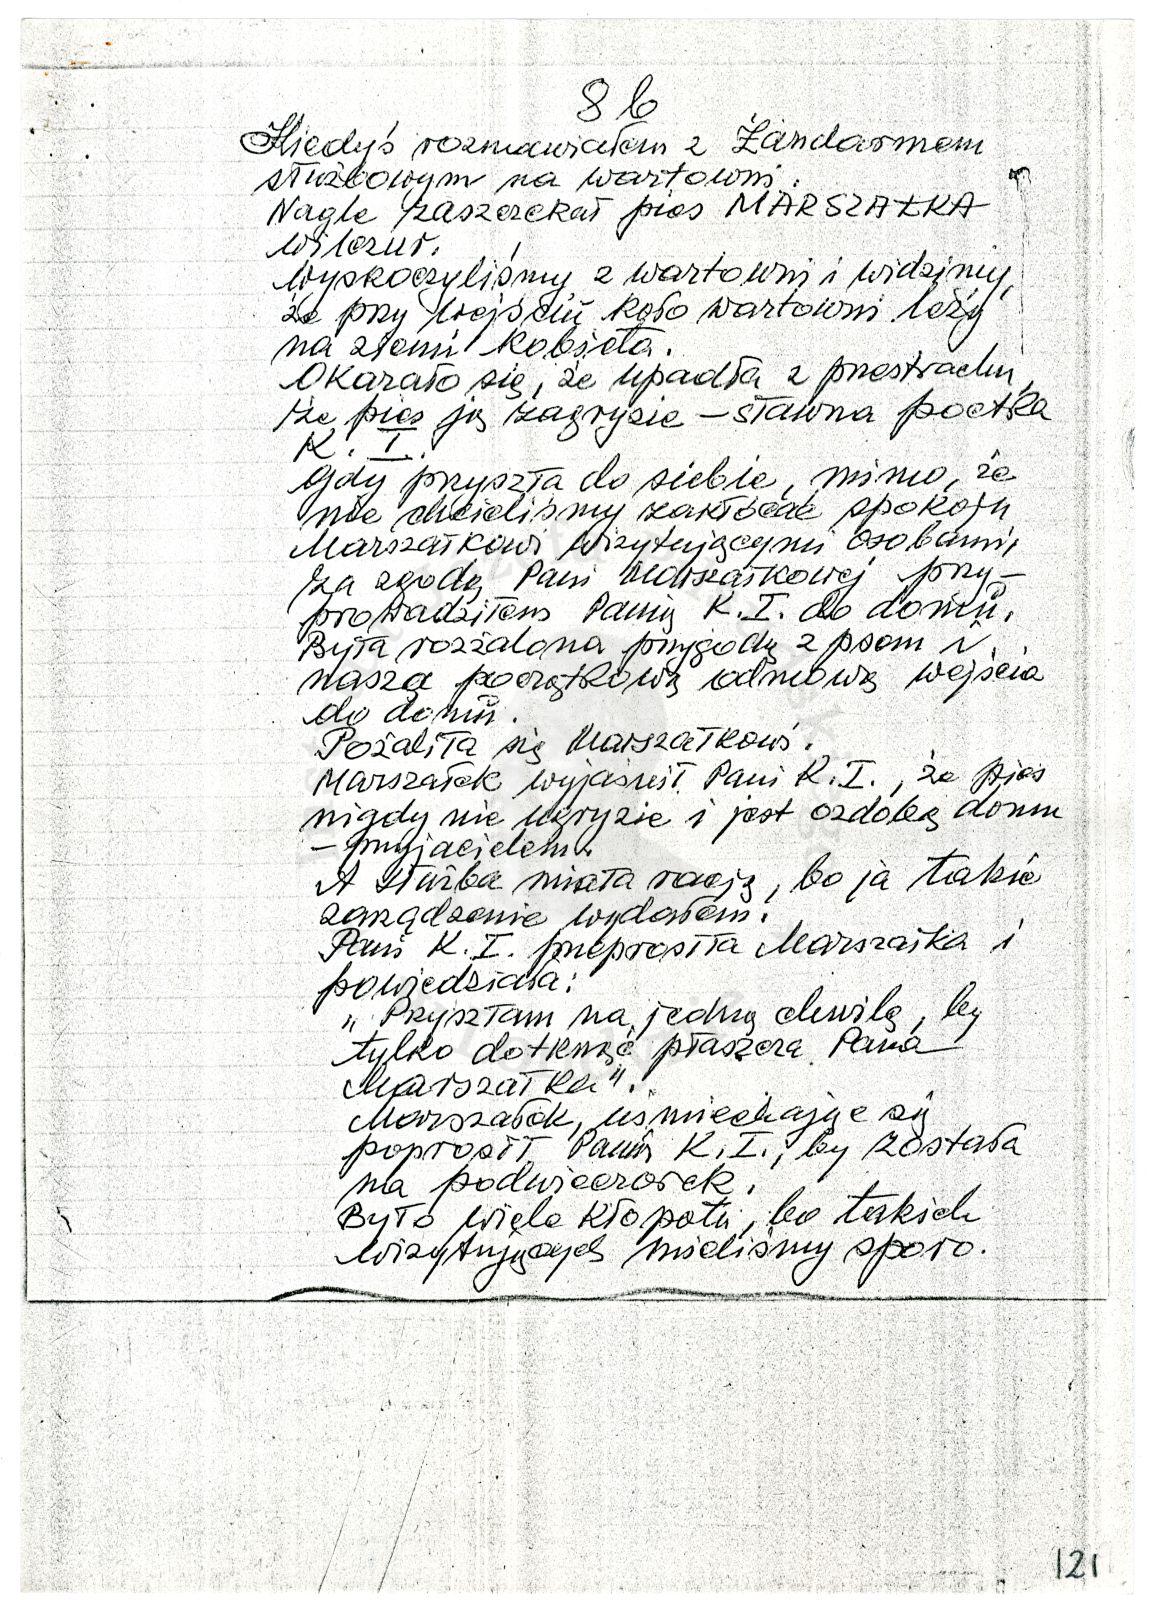 8b
Kiedyś rozmawiałem z Żandarmem
służbowym na wartowni.
Nagle zaszczekał pies MARSZAŁKA
wilczur.
Wyskoczyliśmy z wartowni i widzimy,
że przy wejściu koło wartowni leży
na ziemi kobieta.
Okazało się, że upadła z przestrachu,
że pies ją zagryzie – sławna poetka
K. I.
Gdy przyszła do siebie, mimo, że
nie chcieliśmy zakłócać spokoju
Marszałkowi wizytującymi osobami,
za zgodą Pani Marszałkowej przy-
prowadziłem Panią K. I. do domu.
Była rozżalona przygodą z psem i
naszą początkową odmową wejścia
do domu.
Pożaliła się Marszałkowi.
Marszałek wyjaśnił Pani K. I., że pies
nigdy nie ugryzie i jest ozdobą domu
– przyjacielem.
A służba miała rację, bo ja takie
zarządzenie wydałem.
Pani K. I. przeprosiła Marszałka i
powiedziała:
„Przyszłam na jedną chwilę, by
tylko dotknąć płaszcza Pana
Marszałka".
Marszałek, uśmiechając się
poprosił Panią K. I., by została
na podwieczorek.
Było wiele kłopotu, bo takich
wizytujących mieliśmy sporo.
121